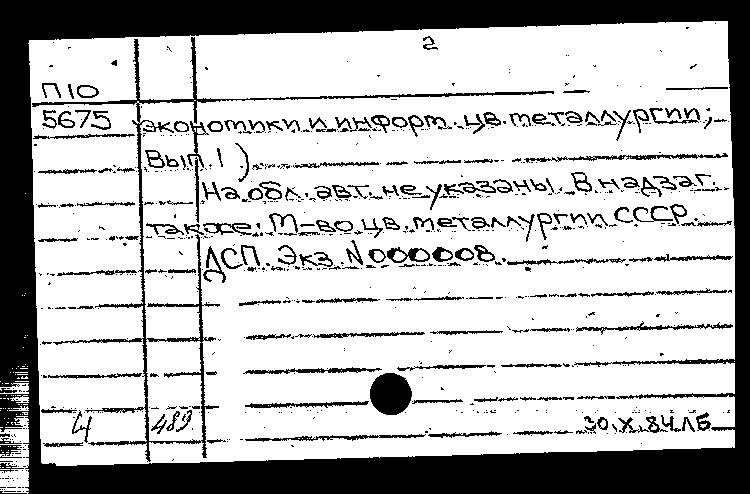 2
П10
5675 экономики и информ. цв. металлургии;
Вып. 1)
На обл. авт. не указаны. В надзаг.
также: М-во цв. металлургии СССР.
ДСП. Экз. N000008.
Ц 489 30.X.84 ЛБ